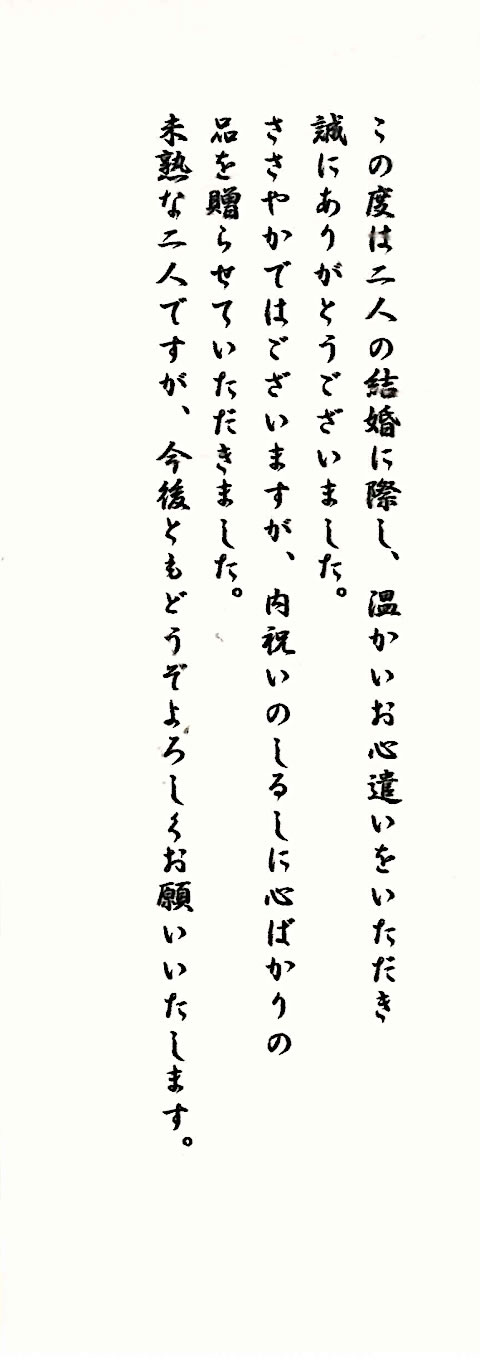 この度は二人の結婚に際し、温かいお心遣いをいただき
誠にありがとうございました。
ささやかではございますが、内祝いのしるしに心ばかりの
品を贈らせていただきました。
未熟な二人ですが、今後ともどうぞよろしくお願いいたします。